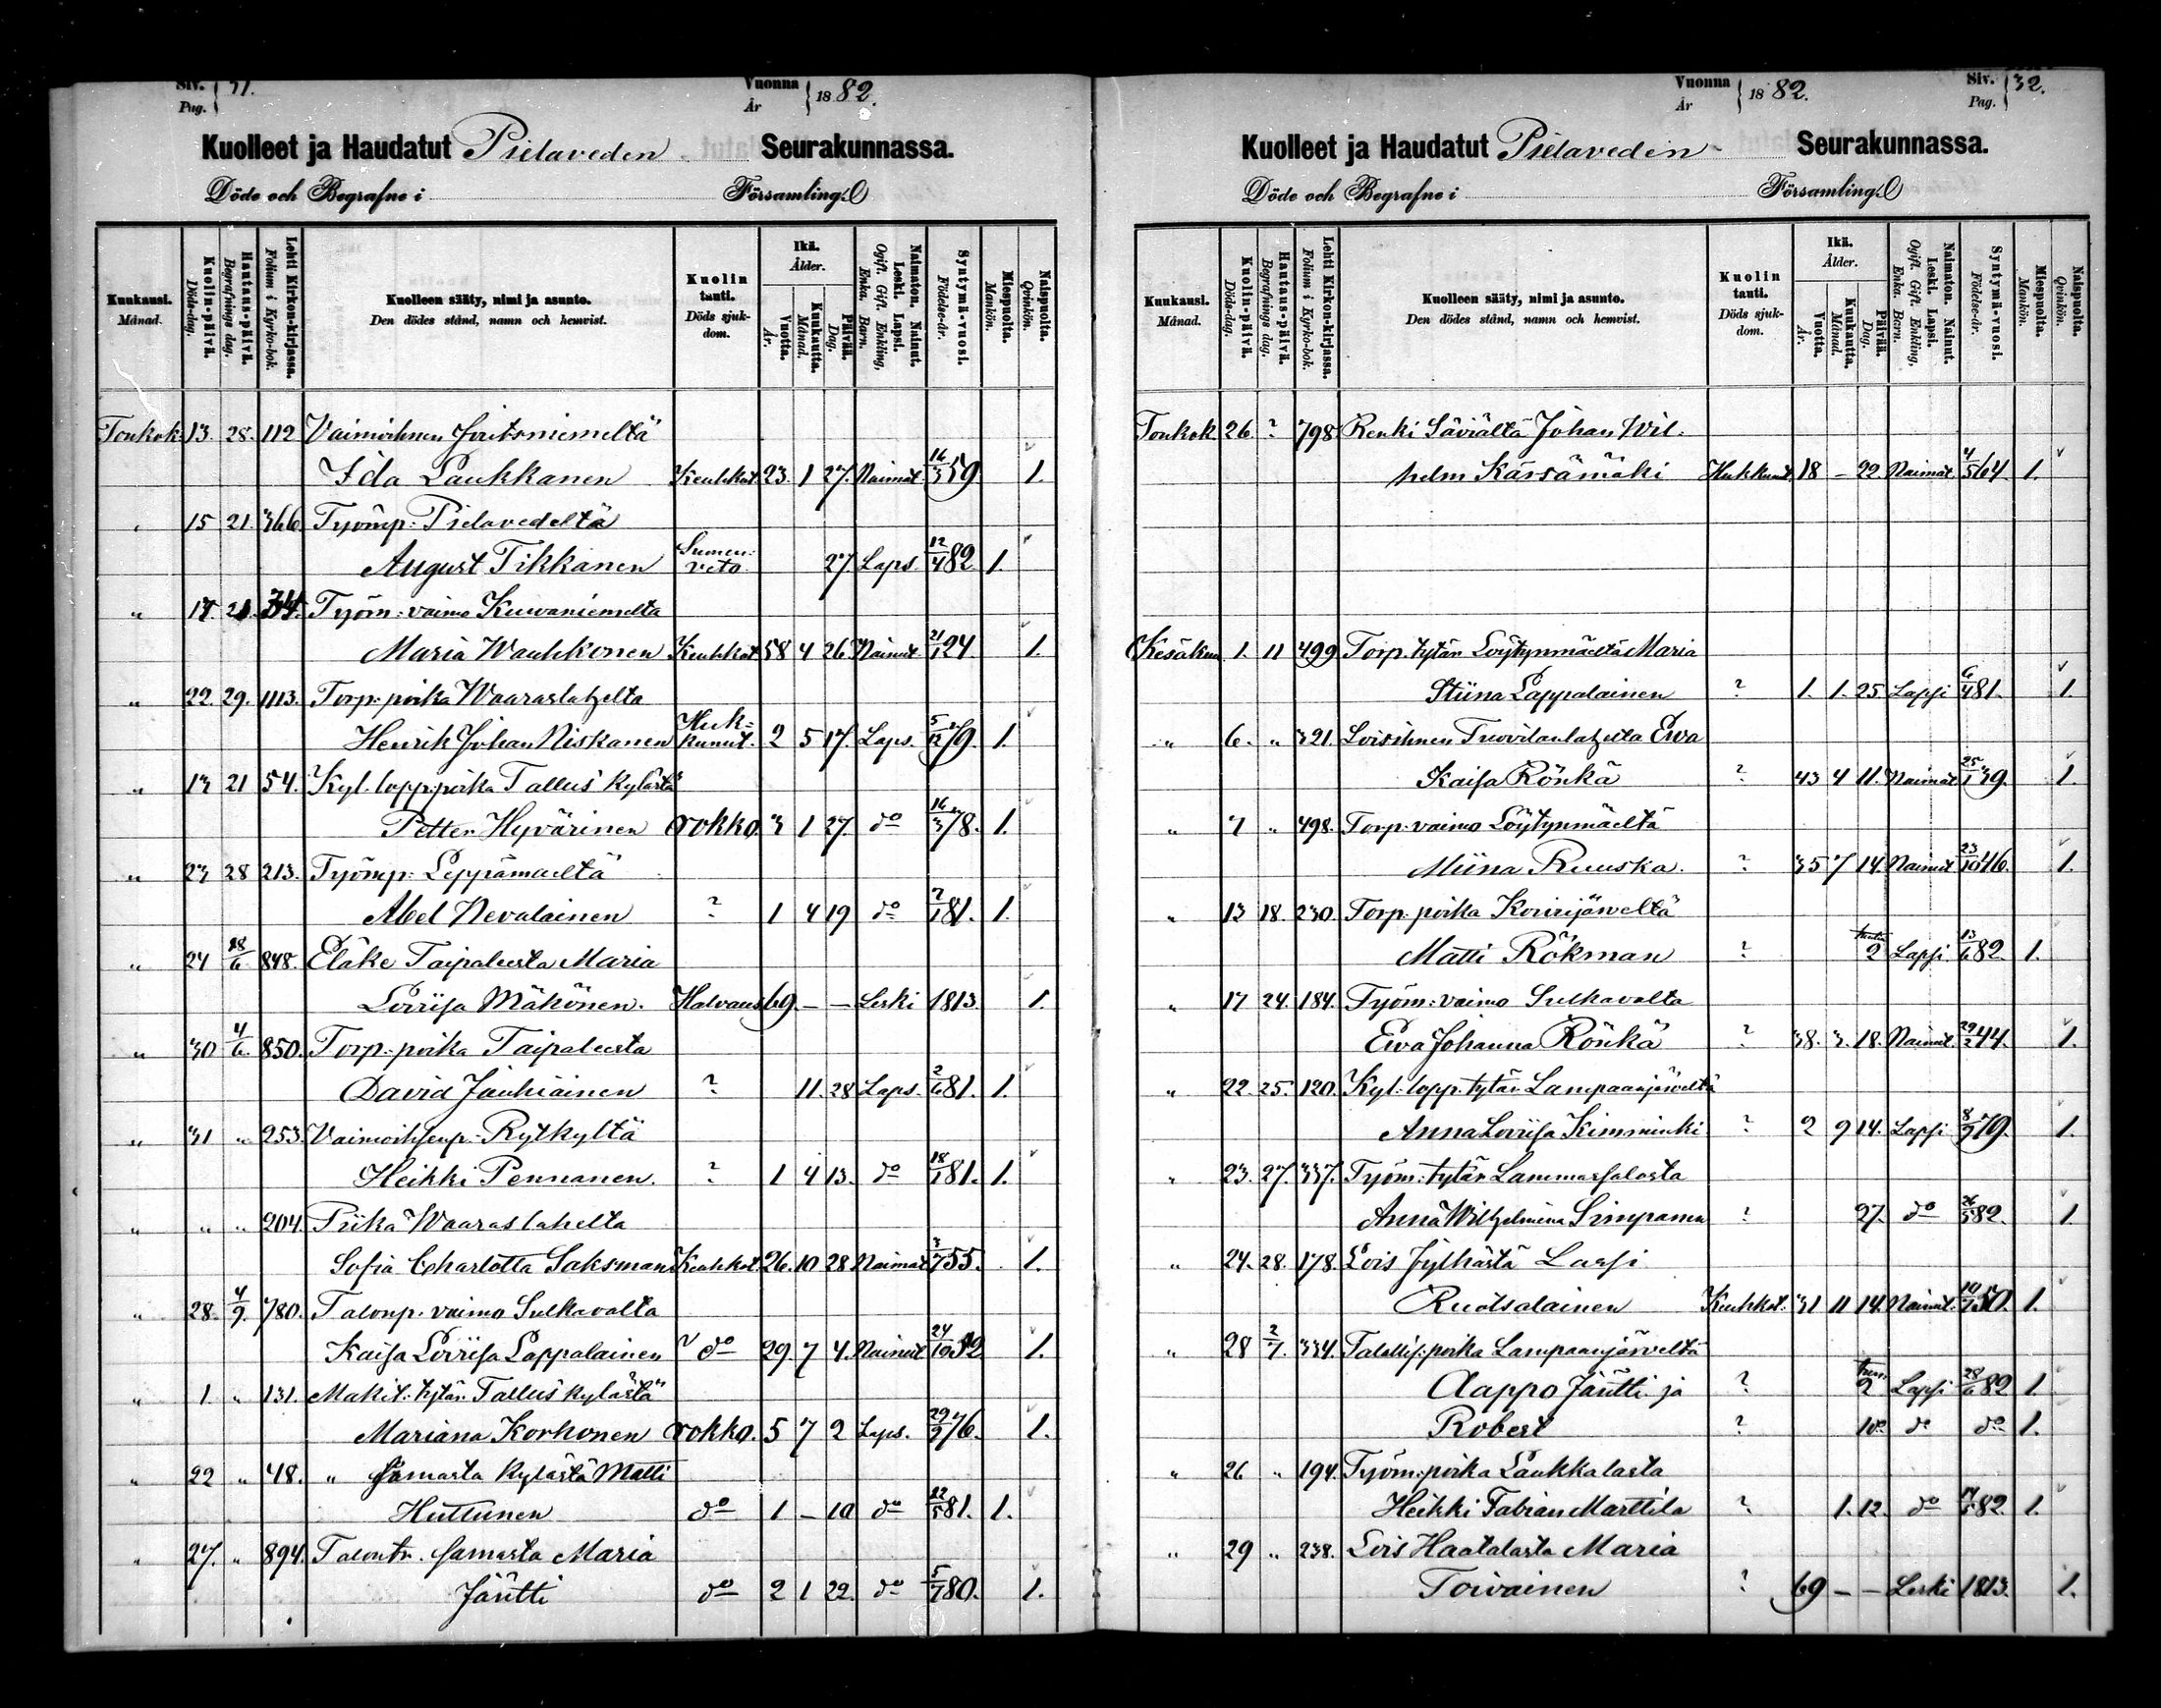 Siv. Pag. 31.
Vuonna År 1882.
Kuolleet ja Haudatut Pielaveden Seurakunnassa.
Döde och Begrafne i Församling.
Kuukausi. Månad.
Kuolin-päivä. Döds-dag.
Hautaus-päivä. Begrafnings dag.
Lehti Kirkon-kirjassa. Folium i Kyrko-bok.
Kuolleen sääty, nimi ja asunto. Den dödes stånd, namn och hemvist.
Kuolin tauti. Döds sjuk-dom.
Ikä. Ålder.
Vuotta. År.
Kuukautta. Månad.
Päivää. Dag.
Naimaton. Nainut. Leski. Lapsi. Ogift. Gift. Enkling, Enka. Barn.
Syntymä-vuosi. Födelse-år.
Miespuolta. Mankön.
Naispuolta. Qvinkön.
Toukok. 13. 28. 112 Vaimoihmen
Ida Laukkanen Keuhkot. 23. 1 27. Naimat. 16/3 59. 1.
" 15 21. 366. Työmp. Pielavedeltä
August Tikkanen Suonen: veto 27. Laps. 12/4 82 1.
" 17. 21. Työm: vaimo Kuivaniemelta
Maria Wauhkonen Keuhkot. 58 4 26. Nainut. 21/1 24. 1.
" 22. 29. 1113. Torp. poika Waaraslahelta
Henrik Johan Niskanen Huk= kunut. 2 5 17. Laps. 5/12 79. 1.
" 13 21 54. Kyl. lopp. poika Tallus kylästä
Petter Hyvärinen rokko. 3 1 27. do 16/3 78. 1.
" 23 28 213. Työmp. Leppämäeltä
Abel Nevalainen ? 1 4 19 do 2/1 81. 1.
" 24 18/6 848. Eläke Taipaleesta Maria
Loviisa Mäkönen. Halvaus 69. – – Leski 1813. 1.
" 30 4/6. 850. Torp. poika Taipaleesta
David Jauhiainen ? 11. 28 Laps. 2/6 81. 1.
" 31 " 253. Vaimoihsenp. Rytkyltä
Heikki Pennanen. ? 1 4 13. do 18/1 81. 1.
" " " 204. Piika Waaraslahelta
Sofia Charlotta Saksman Keuhkot. 26. 10 28 Naimat 3/7 55. 1.
" 28. 4/9. 780. Talonp. vaimo Sulkavalta
Kaisa Loviisa Lappalainen ? do 29. 7 4. Nainut 24/10 52 1.
" 1. " 131. Mäkit. tytär Tallus kylästä
Mariana Korhonen rokko. 5 7 2 Laps. 29/9 76. 1.
" 22 " 48. " Samasta kylästä Matti
Huttunen do 1 – 10 do 12/5 81. 1.
" 27. " 894. Talontr. samasta Maria
Jäntti do 2 1 22. do 5/4 80. 1.
Vuonna År 1882.
Siv. Pag. 32.
Kuolleet ja Haudatut Pielaveden Seurakunnassa.
Döde och Begrafne i Församling.
Kuukausi. Månad.
Kuolin-päivä. Döds-dag.
Hautaus-päivä. Begrafnings dag.
Lehti Kirkon-kirjassa. Folium i Kyrko-bok.
Kuolleen sääty, nimi ja asunto. Den dödes stånd, namn och hemvist.
Kuolin tauti. Döds sjuk-dom.
Ikä. Ålder.
Vuotta. År.
Kuukautta. Månad.
Päivää. Dag.
Naimaton. Nainut. Leski. Lapsi. Ogift. Gift. Enkling, Enka. Barn.
Syntymä-vuosi. Födelse-år.
Miespuolta. Mankön.
Naispuolta. Qvinkön.
Toukok. 26 ? 798. Renki Säviältä Johan Wil.
helm Kärsämäki Hukkunt. 18 – 22. Naimat. 4/5 64. 1.
Kesäkuu 1. 11 499 Torp. tytär Löytynmäeltä Maria
Stiina Lappalainen ? 1. 1. 25. Lapsi 6/4 81. 1.
" 6. " 321. Loisihmen Tuovilanlahelta Ewa
Kaisa Rönkä ? 43 4 11. Naimat. 25/1 39. 1.
" 7 " 498. Torp. vaimo Löytynmäeltä
Miina Ruuska. ? 35 7 14. Nainut 23/10 46. 1.
" 13 18. 230. Torp. poika Kovirijärveltä
Matti Rökman ? tuntia 2 Lapsi. 13/6 82. 1.
" 17 24. 184. Työm: vaimo Sulkavalta
Ewa Johanna Rönkä ? 38. 3. 18. Nainut. 29/2 44. 1.
" 22. 25. 120. Kyl. lopp. tytär Lampaanjärveltä
Anna Loviisa Kimminki ? 2 9 14. Lapsi 8/9 79. 1.
" 23. 27. 337. Työm: tytär Lammassalosta
Anna Wilhelmina Simpanen ? 27. do 26/5 82. 1.
" 24. 28. 178. Lois Jylhästä Lassi
Ruotsalainen Keuhkot. 31 11 14. Nainut. 10/7 50. 1.
" 28 2/7. 334. poika Lampaanjärveltä
Aappo Jäntti ja ? tun. 2 Lapsi 28/6 82 1.
Robert ? 10. do do do 1.
" 26 " 194. Työm. poika Laukkalasta
Heikki Fabian Marttila ? 1. 12. do 14/5 82. 1.
" 29 " 238. Lois Haatalasta Maria
Toivainen ? 69 – – Leski 1813. 1.